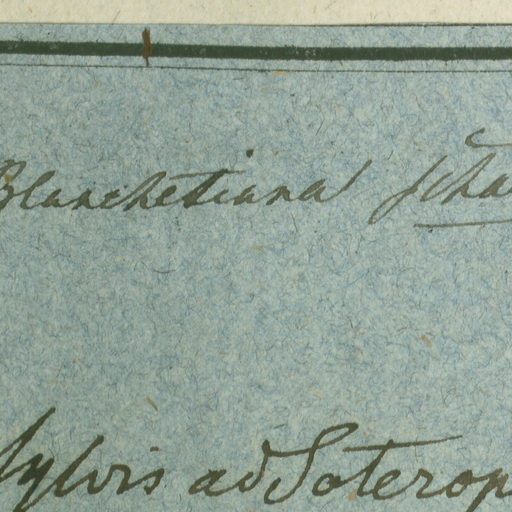 Blanchetiana Scha
Sylvis ad Soterop